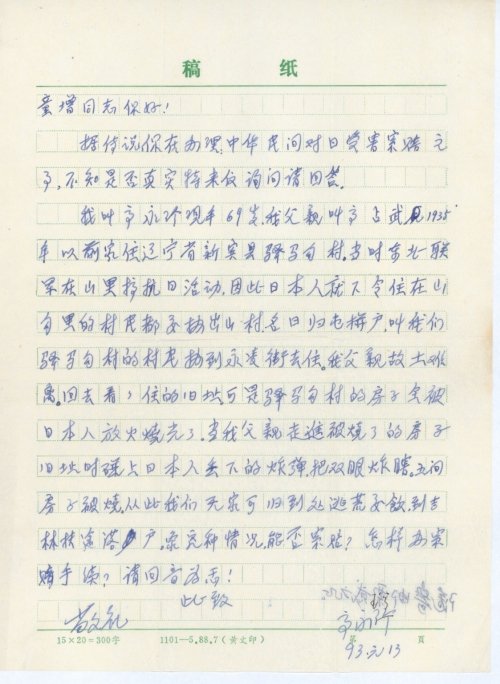 稿 纸
童增同志你好!
据传说你在办理中华民间对日受害索赔之
事,不知是否真实特来信询问请回答。
我叫高永珍现年69岁,我父亲叫高占武,1935
年以前家住辽宁省新宾县驿马沟村。当时东北联
军在山里搞抗日活动,因此日本人就下令住在山
沟里的村民都要搬出山村,名曰归屯拼户,叫我们
驿马沟村的村民搬到永凌街去住。我父亲故土难
离。回去看看住的旧址可是驿马沟村的房子全被
日本人放火烧光了。当我父亲走进被烧了的房子
旧址时踩上日本人丢下的炸弹,把双眼炸瞎。五间
房子被烧,从此我们无家可归到处逃荒要饭,到吉
林 落户,象这种情况,能否索赔?怎样办索
赔手续?请回音为盼!
此致
敬礼
高永珍
93.元.13
15×20=300字 1101—5.88.7(黄文印) 第 页